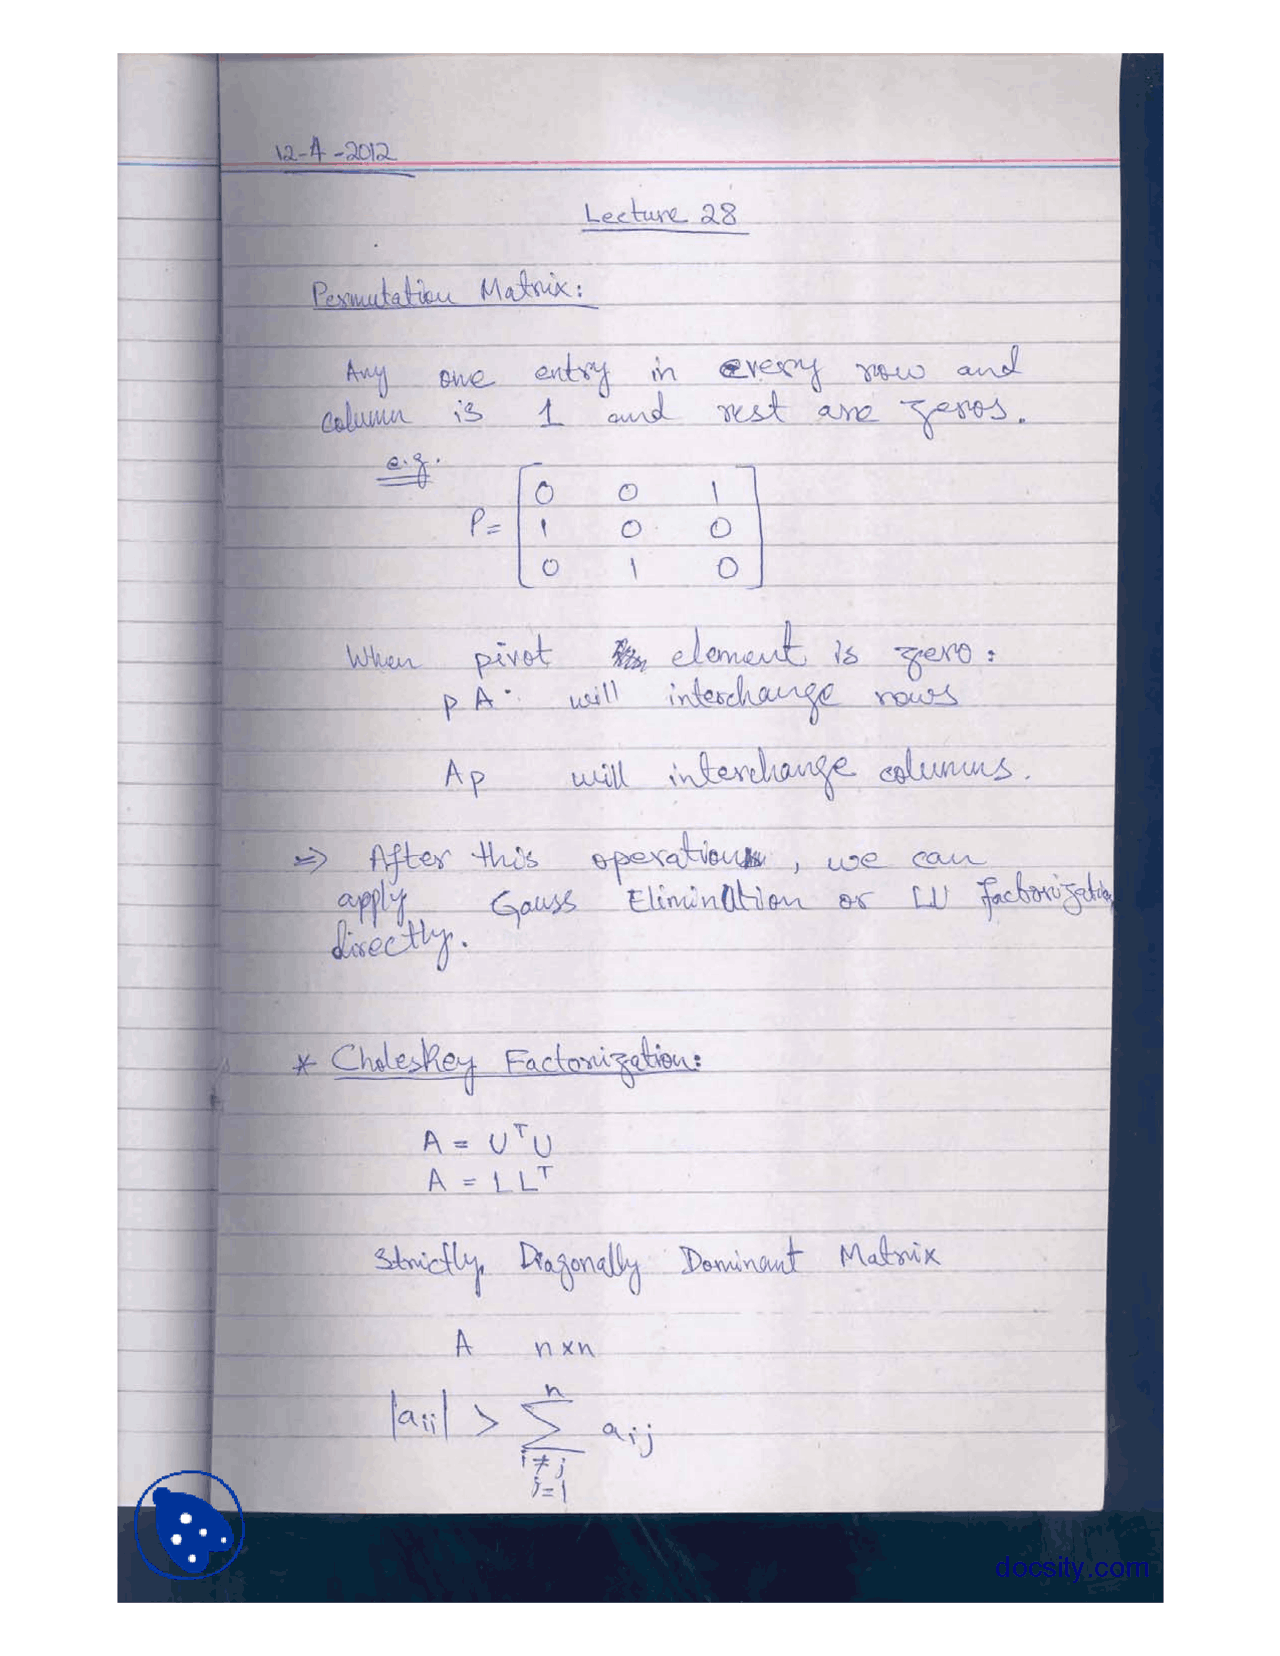 12-4-2012
Lecture 28
Permutation Matrix:
Any one entry in every row and
column is 1 and rest are zeros.
e.g.
P= [ 0 0 1
1 0 0
0 1 0 ]
When pivot element is zero:
PA: will interchange rows
AP will interchange columns.
=> After this operation, we can
apply Gauss Elimination or LU factorization
directly.
* Choleskey Factorization:
A = UᵀU
A = LLᵀ
Strictly Diagonally Dominant Matrix
A n×n
|aii| > n∑ aij
i≠j
j=1
docsity.com